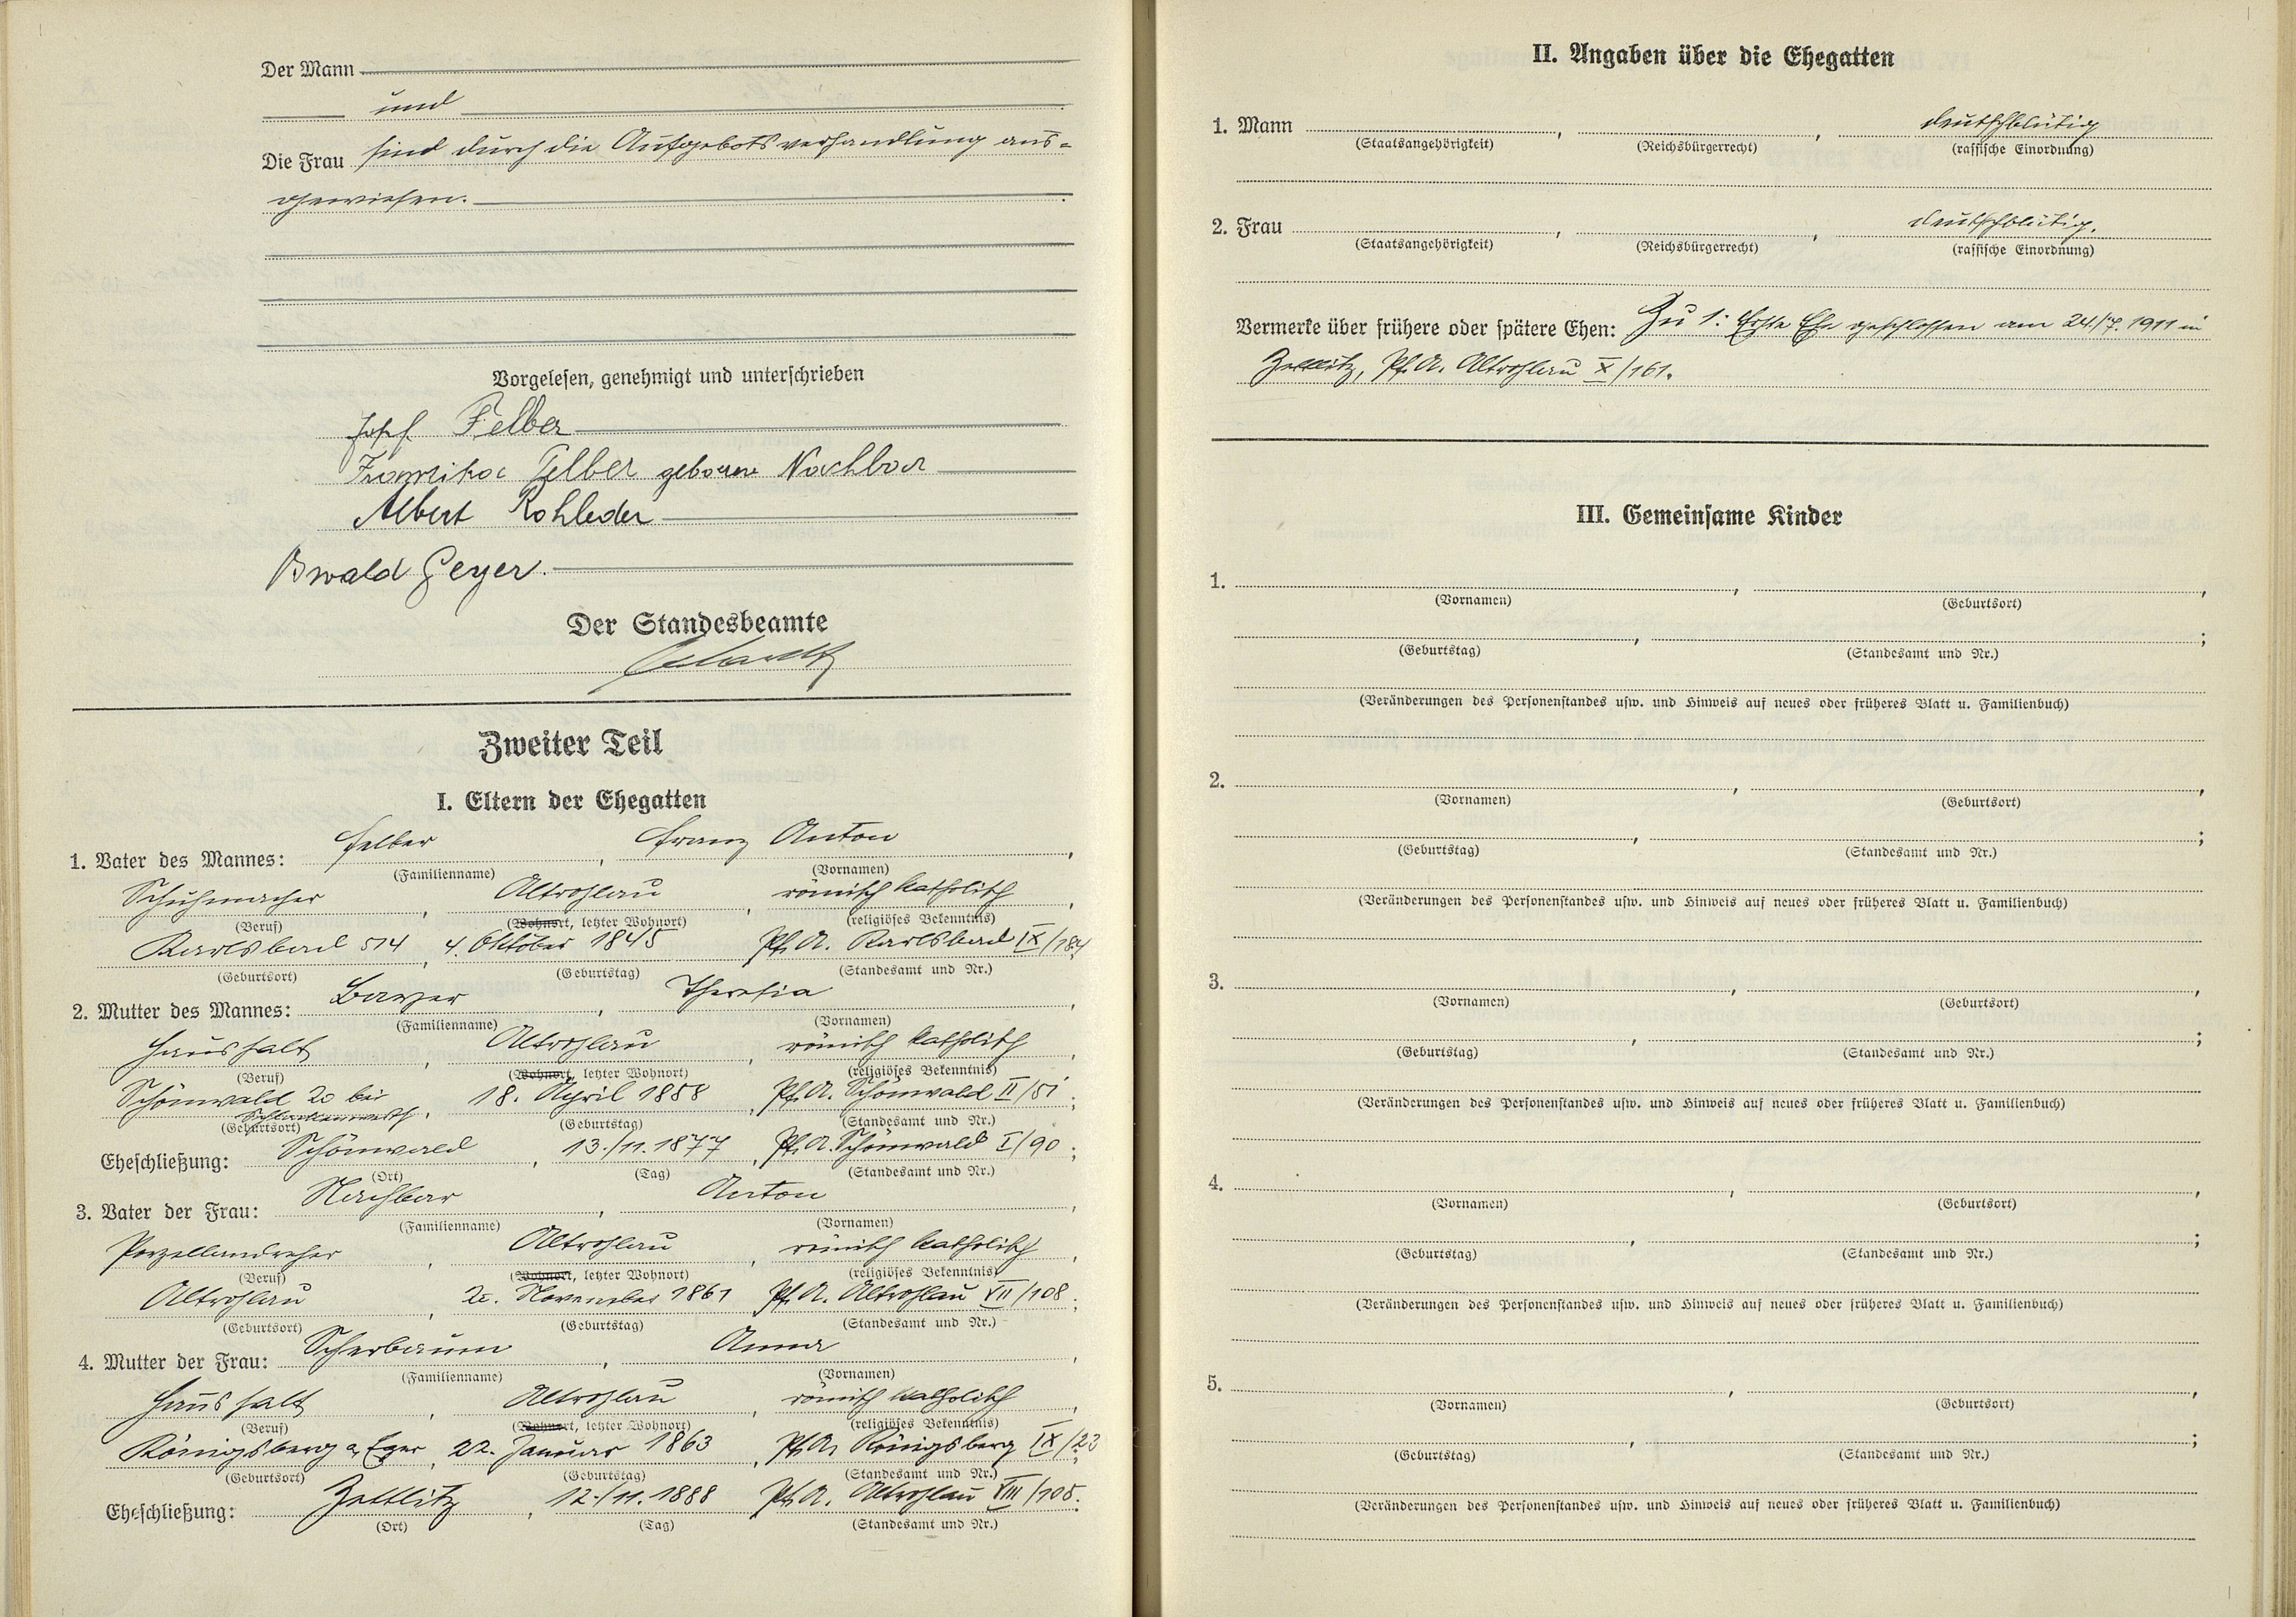 Der Mann
und
Die Frau sind durch die Aufgebotsverhandlung aus-
gewiesen.
Vorgelesen, genehmigt und unterschrieben
Josef Felber
Franziska Felber geborene Nachbar
Albert Rohleder
Oswald Geyer.
Der Standesbeamte
Zweiter Teil
I. Eltern der Ehegatten
1. Vater des Mannes: Felber, Franz Anton,
(Familienname) (Vornamen)
Schuhmacher, Altrohlau, römisch katholisch,
(Beruf) (Wohnort, letzter Wohnort) (religiöses Bekenntnis)
Karlsbad 514, 4. Oktober 1845 Pf. A. Karlsbad IX/184
(Geburtsort) (Geburtstag) (Standesamt und Nr.)
2. Mutter des Mannes: Theresia,
(Familienname) (Vornamen)
Haushalt, Altrohlau, römisch katholisch,
(Beruf) (Wohnort, letzter Wohnort) (religiöses Bekenntnis)
Schönwald 20 bei, 18. April 1858 Pf. A. Schönwald II/51;
(Geburtsort) (Geburtstag) (Standesamt und Nr.)
Eheschließung: Schönwald, 13./11.1877, Pf. A. Schönwald I/90;
(Ort) (Tag) (Standesamt und Nr.)
3. Vater der Frau: Nachbar, Anton,
(Familienname) (Vornamen)
Porzellandreher, Altrohlau, römisch katholisch,
(Beruf) (Wohnort, letzter Wohnort) (religiöses Bekenntnis)
Altrohlau, November 1861 Pf. A. Altrohlau VII/108;
(Geburtsort) (Geburtstag) (Standesamt und Nr.)
4. Mutter der Frau: Scherbaum, Anna,
(Familienname) (Vornamen)
Haushalt, Altrohlau, römisch katholisch,
(Beruf) (Wohnort, letzter Wohnort) (religiöses Bekenntnis)
Königsberg a. Eger, 22. Januar 1863, Pf. A. Königsberg IX/23;
(Geburtsort) (Geburtstag) (Standesamt und Nr.)
Eheschließung: Zettlitz, 12./11.1888 Pf. A. Altrohlau VIII/105.
(Ort) (Tag) (Standesamt und Nr.)
II. Angaben über die Ehegatten
1. Mann , , deutschblütig
(Staatsangehörigkeit) (Reichsbürgerrecht) (rassische Einordnung)
2. Frau , , deutschblütig.
(Staatsangehörigkeit) (Reichsbürgerrecht) (rassische Einordnung)
Vermerke über frühere oder spätere Ehen: Zu 1: Erste Ehe geschlossen am 24./7. 1911 in
Zettlitz, Pf. A. Altrohlau X/161.
III. Gemeinsame Kinder
1. , ,
(Vornamen) (Geburtsort)
, ;
(Geburtstag) (Standesamt und Nr.)
(Veränderungen des Personenstandes usw. und Hinweis auf neues oder früheres Blatt u. Familienbuch)
2. , ,
(Vornamen) (Geburtsort)
, ;
(Geburtstag) (Standesamt und Nr.)
(Veränderungen des Personenstandes usw. und Hinweis auf neues oder früheres Blatt u. Familienbuch)
3. , ,
(Vornamen) (Geburtsort)
, ;
(Geburtstag) (Standesamt und Nr.)
(Veränderungen des Personenstandes usw. und Hinweis auf neues oder früheres Blatt u. Familienbuch)
4. , ,
(Vornamen) (Geburtsort)
, ;
(Geburtstag) (Standesamt und Nr.)
(Veränderungen des Personenstandes usw. und Hinweis auf neues oder früheres Blatt u. Familienbuch)
5. , ,
(Vornamen) (Geburtsort)
, ;
(Geburtstag) (Standesamt und Nr.)
(Veränderungen des Personenstandes usw. und Hinweis auf neues oder früheres Blatt u. Familienbuch)